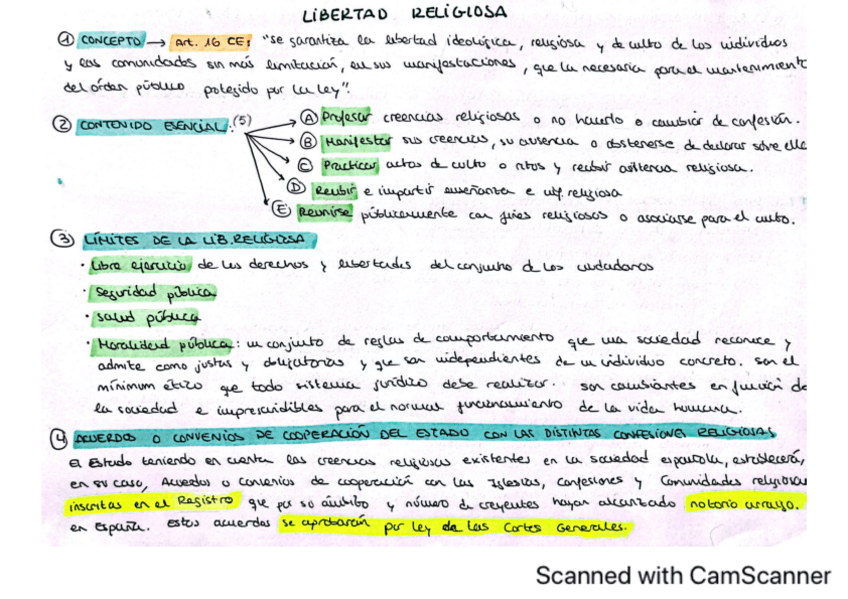 LIBERTAD RELIGIOSA
① CONCEPTO → Art. 16 CE: "se garantiza la libertad ideológica, religiosa y de culto de los individuos
y las comunidades sin más limitación, en sus manifestaciones, que la necesaria para el mantenimiento
del órden público protegido por la ley".
② CONTENIDO ESENCIAL: (5)
Ⓐ Profesar creencias religiosas o no hacerlo o cambiar de confesión.
Ⓑ Manifestar sus creencias, su ausencia o abstenerse de declarar sobre ella
Ⓒ Practicar actos de culto o ritos y recibir asistencia religiosa.
Ⓓ Recibir e impartir enseñanza e inf. religiosa
Ⓔ Reunirse públicamente con fines religiosos o asociarse para el culto.
③ LÍMITES DE LA LIB. RELIGIOSA
· Libre ejercicio de los derechos y libertades del conjunto de los ciudadanos
· Seguridad pública
· Salud pública
· Moralidad pública: un conjunto de reglas de comportamiento que una sociedad reconoce y
admite como justas y obligatorias y que son independientes de un individuo concreto. son el
mínimum ético que todo sistema jurídico debe realizar. son cambiantes en función de
la sociedad e imprescindibles para el normal funcionamiento de la vida humana.
④ ACUERDOS O CONVENIOS DE COOPERACIÓN DEL ESTADO CON LAS DISTINTAS CONFESIONES RELIGIOSAS
El Estado teniendo en cuenta las creencias religiosas existentes en la sociedad española, establecerá,
en su caso, Acuerdos o convenios de cooperación con las Iglesias, Confesiones y Comunidades religiosas
inscritas en el Registro que por su ámbito y número de creyentes hayan alcanzado notorio arraigo.
en España. estos acuerdos se aprobarán por ley de las Cortes Generales.
Scanned with CamScanner